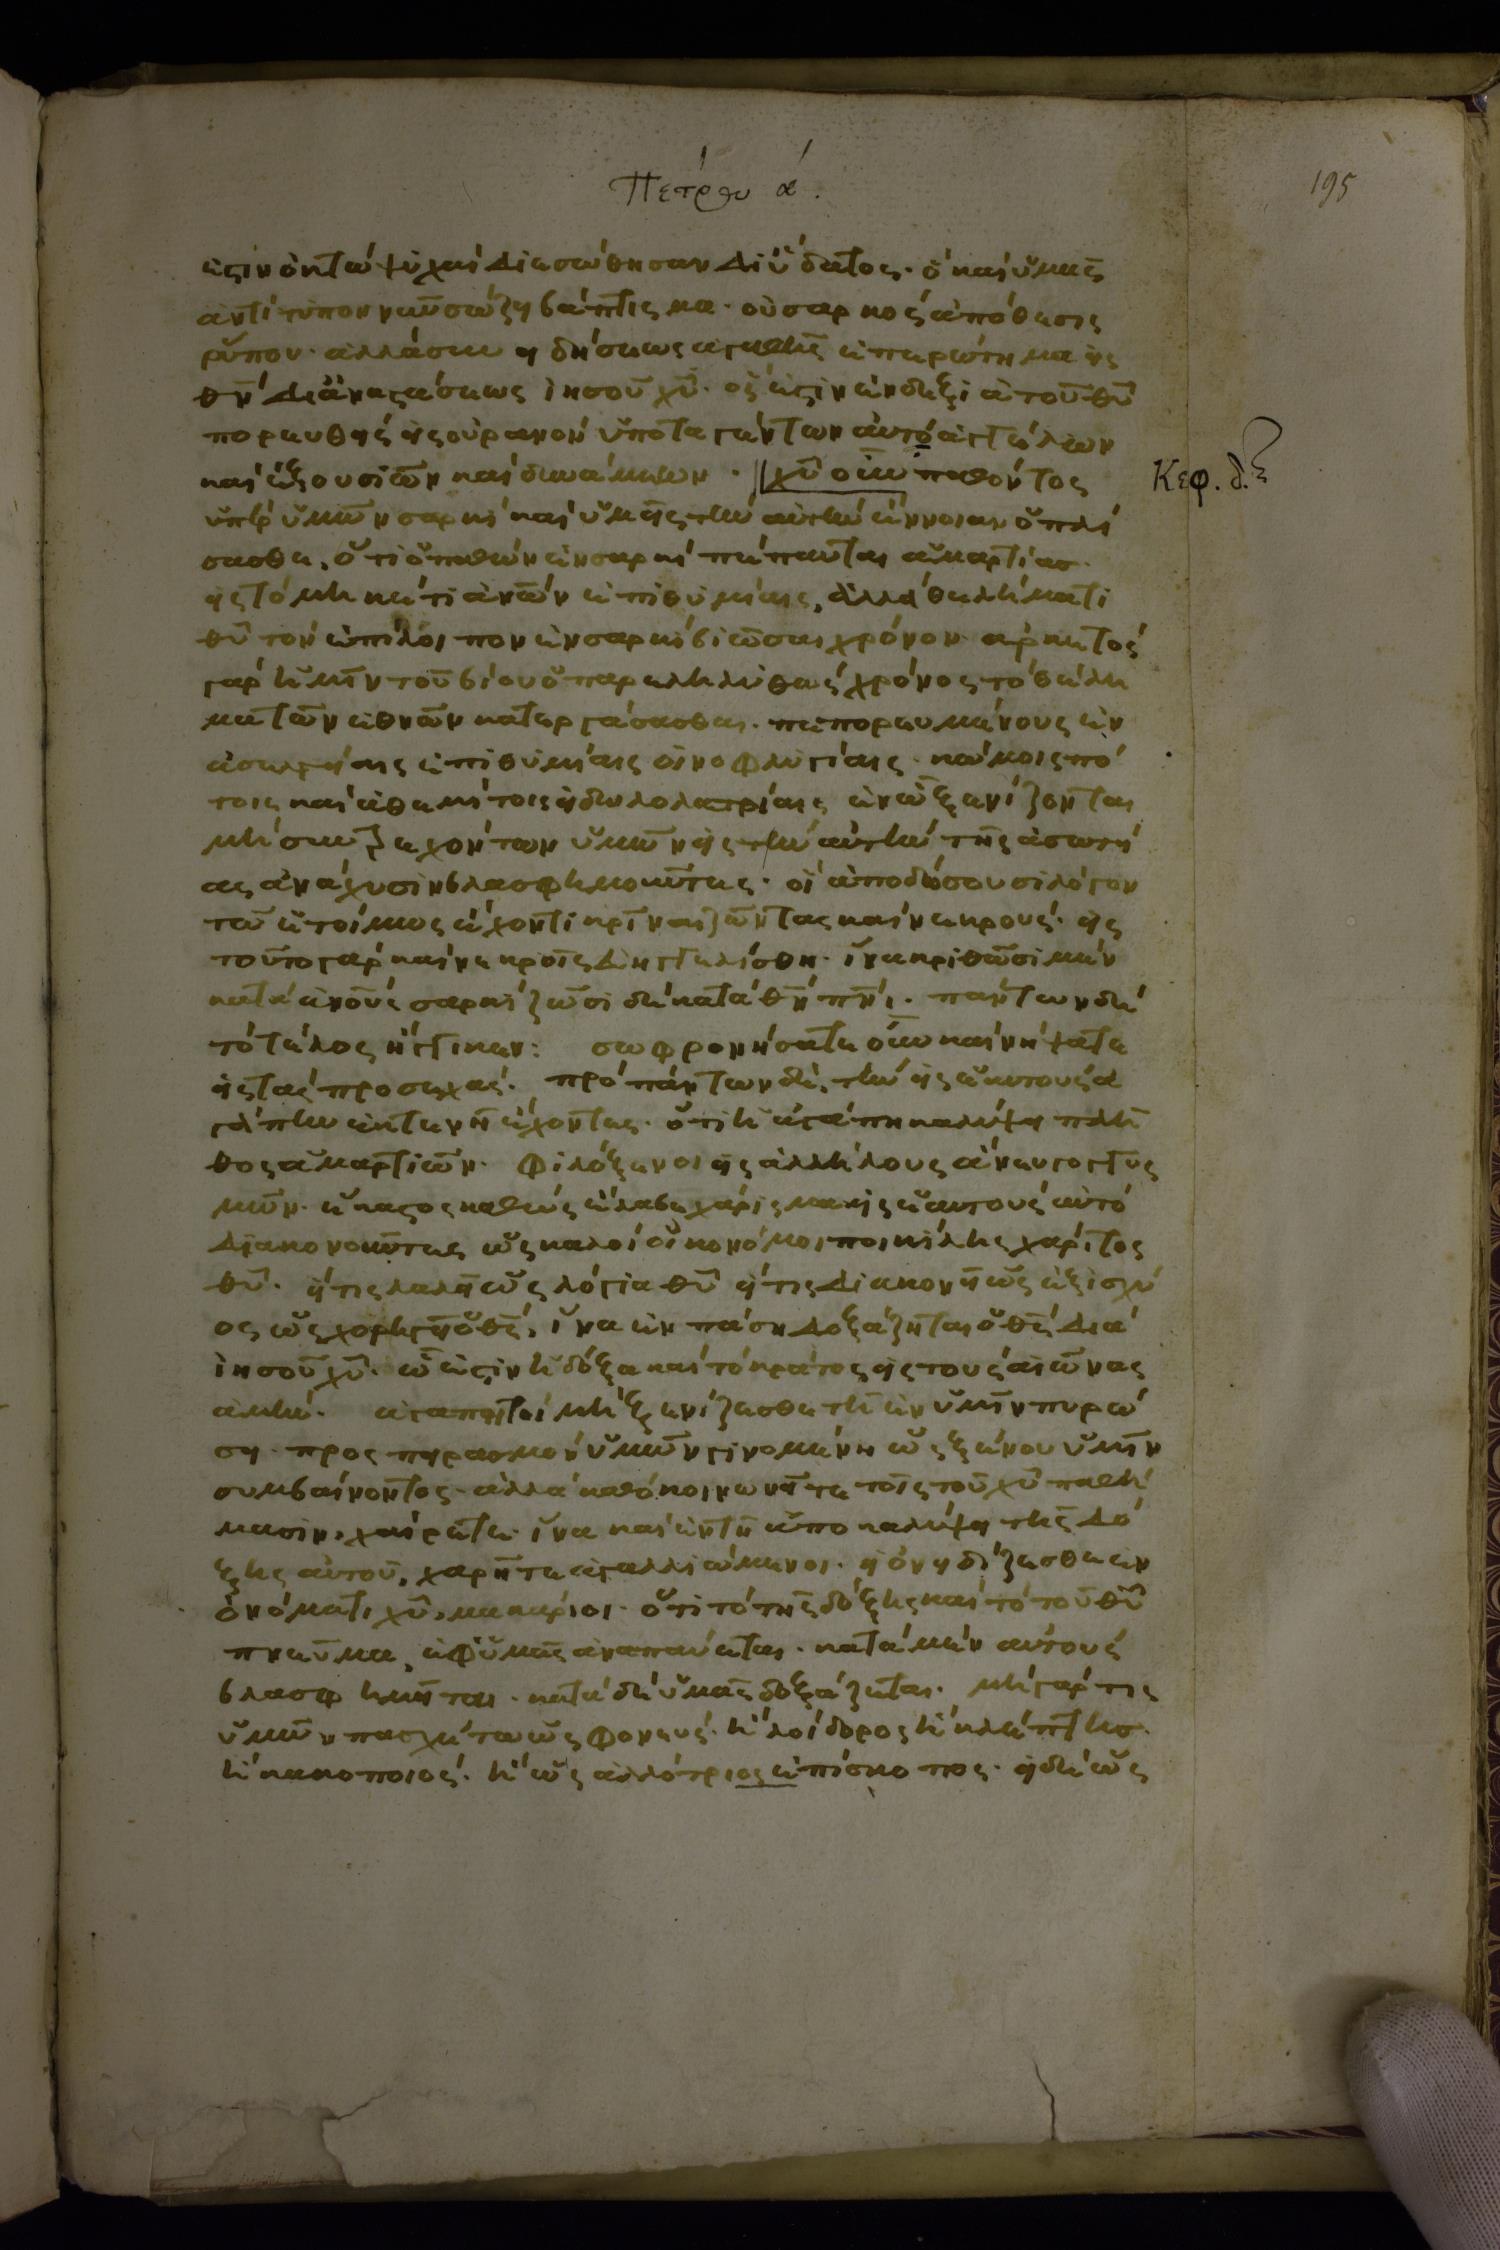 Πέτρου ά.
195
ἐστιν ὀκτὼ ψυχαὶ διεσώθησαν δι ὕδατος· ὃ καὶ ὑμᾶς
ἀντίτυπον νῦν σώζει βάπτισμα· οὐ σαρκὸς ἀπόθεσις
ῥύπου· ἀλλὰ συνειδήσεως ἀγαθῆς ἐπερώτημα εἰς
θν̅ δι ἀναστάσεως ἰησοῦ χυ̅· ὅς ἐστιν ἐν δεξιᾶ τοῦ θυ̅
πορευθεὶς εἰς οὐρανὸν ὑποταγέντων αὐτῶ ἀγγέλων
καὶ ἐξουσιῶν καὶ δυνάμεων · χυ̅ οὖν παθόντος
ὑπὲρ ὑμῶν σαρκὶ καὶ ὑμεῖς τὴν αὐτὴν ἔννοιαν ὁπλί
σασθε, ὅτι ὁ παθὼν ἐν σαρκὶ πέπαυται ἁμαρτίας·
εἰς τὸ μηκέτι ἀνω̅ν ἐπιθυμίαις, ἀλλὰ θελήματι
θυ̅ τὸν ἐπίλοιπον ἐν σαρκὶ βιῶσαι χρόνον· ἀρκετὸς
γὰρ ἡμῖν τοῦ βίου ὁ παρεληλυθὼς χρόνος τὸ θέλη
μα τῶν ἐθνῶν κατεργάσασθαι· πεπορευμένους ἐν
ἀσελγείαις ἐπιθυμίαις οἰνοφλυγίαις· κώμοις πό
τοις καὶ ἀθεμίτοις εἰδωλολατρίαις ἐν ὧ ξενίζονται
μὴ συντρεχόντων ὑμῶν εἰς τὴν αὐτὴν τῆς ἀσωτεί
ας ἀνάχυσιν βλασφημοῦντες· οἳ ἀποδώσουσι λόγον
τῶ ἑτοίμως ἔχοντι κρῖναι ζῶντας καὶ νεκρούς· εἰς
τοῦτο γὰρ καὶ νεκροῖς εὐηγγελίσθη· ἵνα κριθῶσι μὲν
κατὰ ἀνο̅υς σαρκὶ ζῶσι δὲ κατὰ θν̅ πν̅ι· πάντων δὲ
τὸ τέλος ἤγγικεν: σωφρονήσατε οὖν καὶ νήψατε
εἰς τὰς προσευχάς· πρὸ πάντων δὲ, τὴν εἰς ἑαυτοὺς ἀ
γάπην ἐκτενῆ ἔχοντες· ὅτι ἡ ἀγάπη καλύψει πλῆ
θος ἁμαρτιῶν· φιλόξενοι εἰς ἀλλήλους ἄνευ γογγυσ
μῶν· ἕκαστος καθὼς ἔλαβε χάρισμα εἰς ἑαυτοὺς αὐτὸ
διακονοῦντες ὡς καλοὶ οἰκονόμοι ποικίλης χάριτος
θυ̅· εἴ τις λαλεῖ ὡς λόγια θυ̅ εἴ τις διακονεῖ ὡς ἐξ ἰσχύ
ος ὡς χορηγεῖ ὁ θς̅, ἵνα ἐν πάση δοξάζηται ὁ θς̅ διὰ
ἰησοῦ χυ̅· ὧ ἐστιν ἡ δόξα καὶ τὸ κράτος εἰς τοὺς αἰῶνας
ἀμήν· ἀγαπητοὶ μὴ ξενίζεσθε τῆ ἐν ὑμῖν πυρώ
σει· προς πειρασμὸν ὑμῶν γινομένη ὡς ξένου ὑμῖν
συμβαίνοντος· ἀλλὰ καθὸ κοινωνεῖτε τοῖς τοῦ χυ̅ παθή
μασιν, χαίρετε· ἵνα καὶ ἐν τῆ ἀποκαλύψει τῆς δό
ξης αὐτοῦ, χαρῆτε ἀγαλλιώμενοι· εἰ ὀνειδίζεσθε ἐν
ὀνόματι χυ̅, μακάριοι· ὅτι τὸ τῆς δόξης καὶ τὸ τοῦ θυ̅
πνεῦμα, ἐφ ὑμᾶς ἀναπαύεται· κατὰ μὲν αὐτοὺς
βλασφημεῖται· κατὰ δὲ ὑμᾶς δοξάζεται· μὴ γάρ τις
ὑμῶν πασχέτω ὡς φονεύς· ἢ λοίδορος ἢ κλέπτης·
ἢ κακοποιός· ἢ ὡς ἀλλότριος ἐπίσκοπος· εἰ δὲ ὡς
Κεφ. δ.